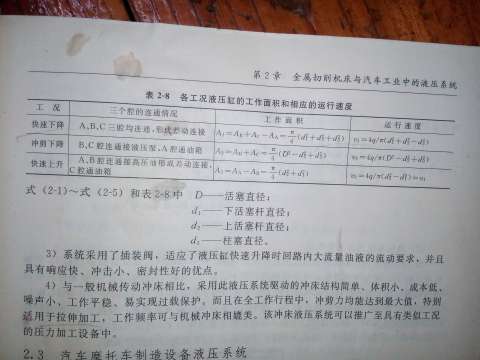 第2章 金属切削机床与汽车工业中的液压系统
表 2-8 各工况液压缸的工作面积和相应的运行速度
工 况 三个腔的连通情况 工 作 面 积 运 行 速 度
快速下降 A,B,C三腔均连通,形成差动连接
冲剪下降 B,C腔连通接液压泵,A腔通油箱
快速上升 A,B腔连通接高压油形成差动连接,
C腔通油箱
式(2-1)~式(2-5)和表2-8中 D——活塞直径;
d₁——下活塞杆直径;
——上活塞杆直径;
——柱塞直径。
3)系统采用了插装阀,适应了液压缸快速升降时回路内大流量油液的流动要求,并且
具有响应快、冲击小、密封性好的优点。
4)与一般机械传动冲床相比,采用此液压系统驱动的冲床结构简单、体积小、成本低、
噪声小,工作平稳、易实现过载保护。而且在全工作行程中,冲剪力均能达到最大值,特别
适用于拉伸加工,工作频率可与机械冲床相媲美。该冲床液压系统可以推广至具有类似工况
的压力加工设备中。
2.3 汽车摩托车制造设备液压系统